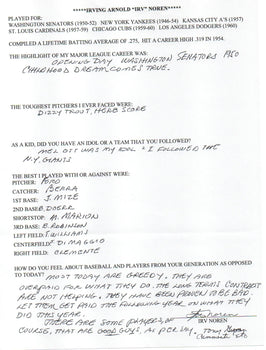 *****IRVING ARNOLD "IRV" NOREN*****
PLAYED FOR:
WASHINGTON SENATORS (1950-52) NEW YORK YANKEES (1946-54) KANSAS CITY A'S (1957)
ST. LOUIS CARDINALS (1957-59) CHICAGO CUBS (1959-60) LOS ANGELES DODGERS (1960)
COMPILED A LIFETIME BATTING AVERAGE OF .275, HIT A CAREER HIGH .319 IN 1954.
THE HIGHLIGHT OF MY MAJOR LEAGUE CAREER WAS:
OPENING DAY WASHINGTON SENATORS 1950
CHILDHOOD DREAM COMES TRUE.
THE TOUGHEST PITCHERS I EVER FACED WERE:
DIZZY TROUT, HERB SCORE
AS A KID, DID YOU HAVE AN IDOL OR A TEAM THAT YOU FOLLOWED?
MEL OTT WAS MY IDOL & I FOLLOWED THE
N.Y. GIANTS
THE BEST I PLAYED WITH OR AGAINST WERE:
PITCHER: FORD
CATCHER: BERRA
1ST BASE: J. MIZE
2ND BASE: B. DOERR
SHORTSTOP: M. MARION
3RD BASE: B. ROBINSON
LEFT FIELD: T. WILLIAMS
CENTERFIELD: DIMAGGIO
RIGHT FIELD: CLEMENTE
HOW DO YOU FEEL ABOUT BASEBALL AND PLAYERS FROM YOUR GENERATION AS OPPOSED
TO TODAY? MOST TODAY ARE GREEDY. THEY ARE
OVERPAID FOR WHAT THEY DO. THE LONG TERMS CONTRACT
ARE NOT HELPING. THEY HAVE BEEN PROVEN TO BE BAD.
LET THEM GET PAID THE FOLLOWING YEAR ON WHAT THEY
DID THIS YEAR.
IRV NOREN
THERE ARE SOME PLAYERS, OF
COURSE, THAT ARE GOOD GUYS, AS PER SAY. TONY